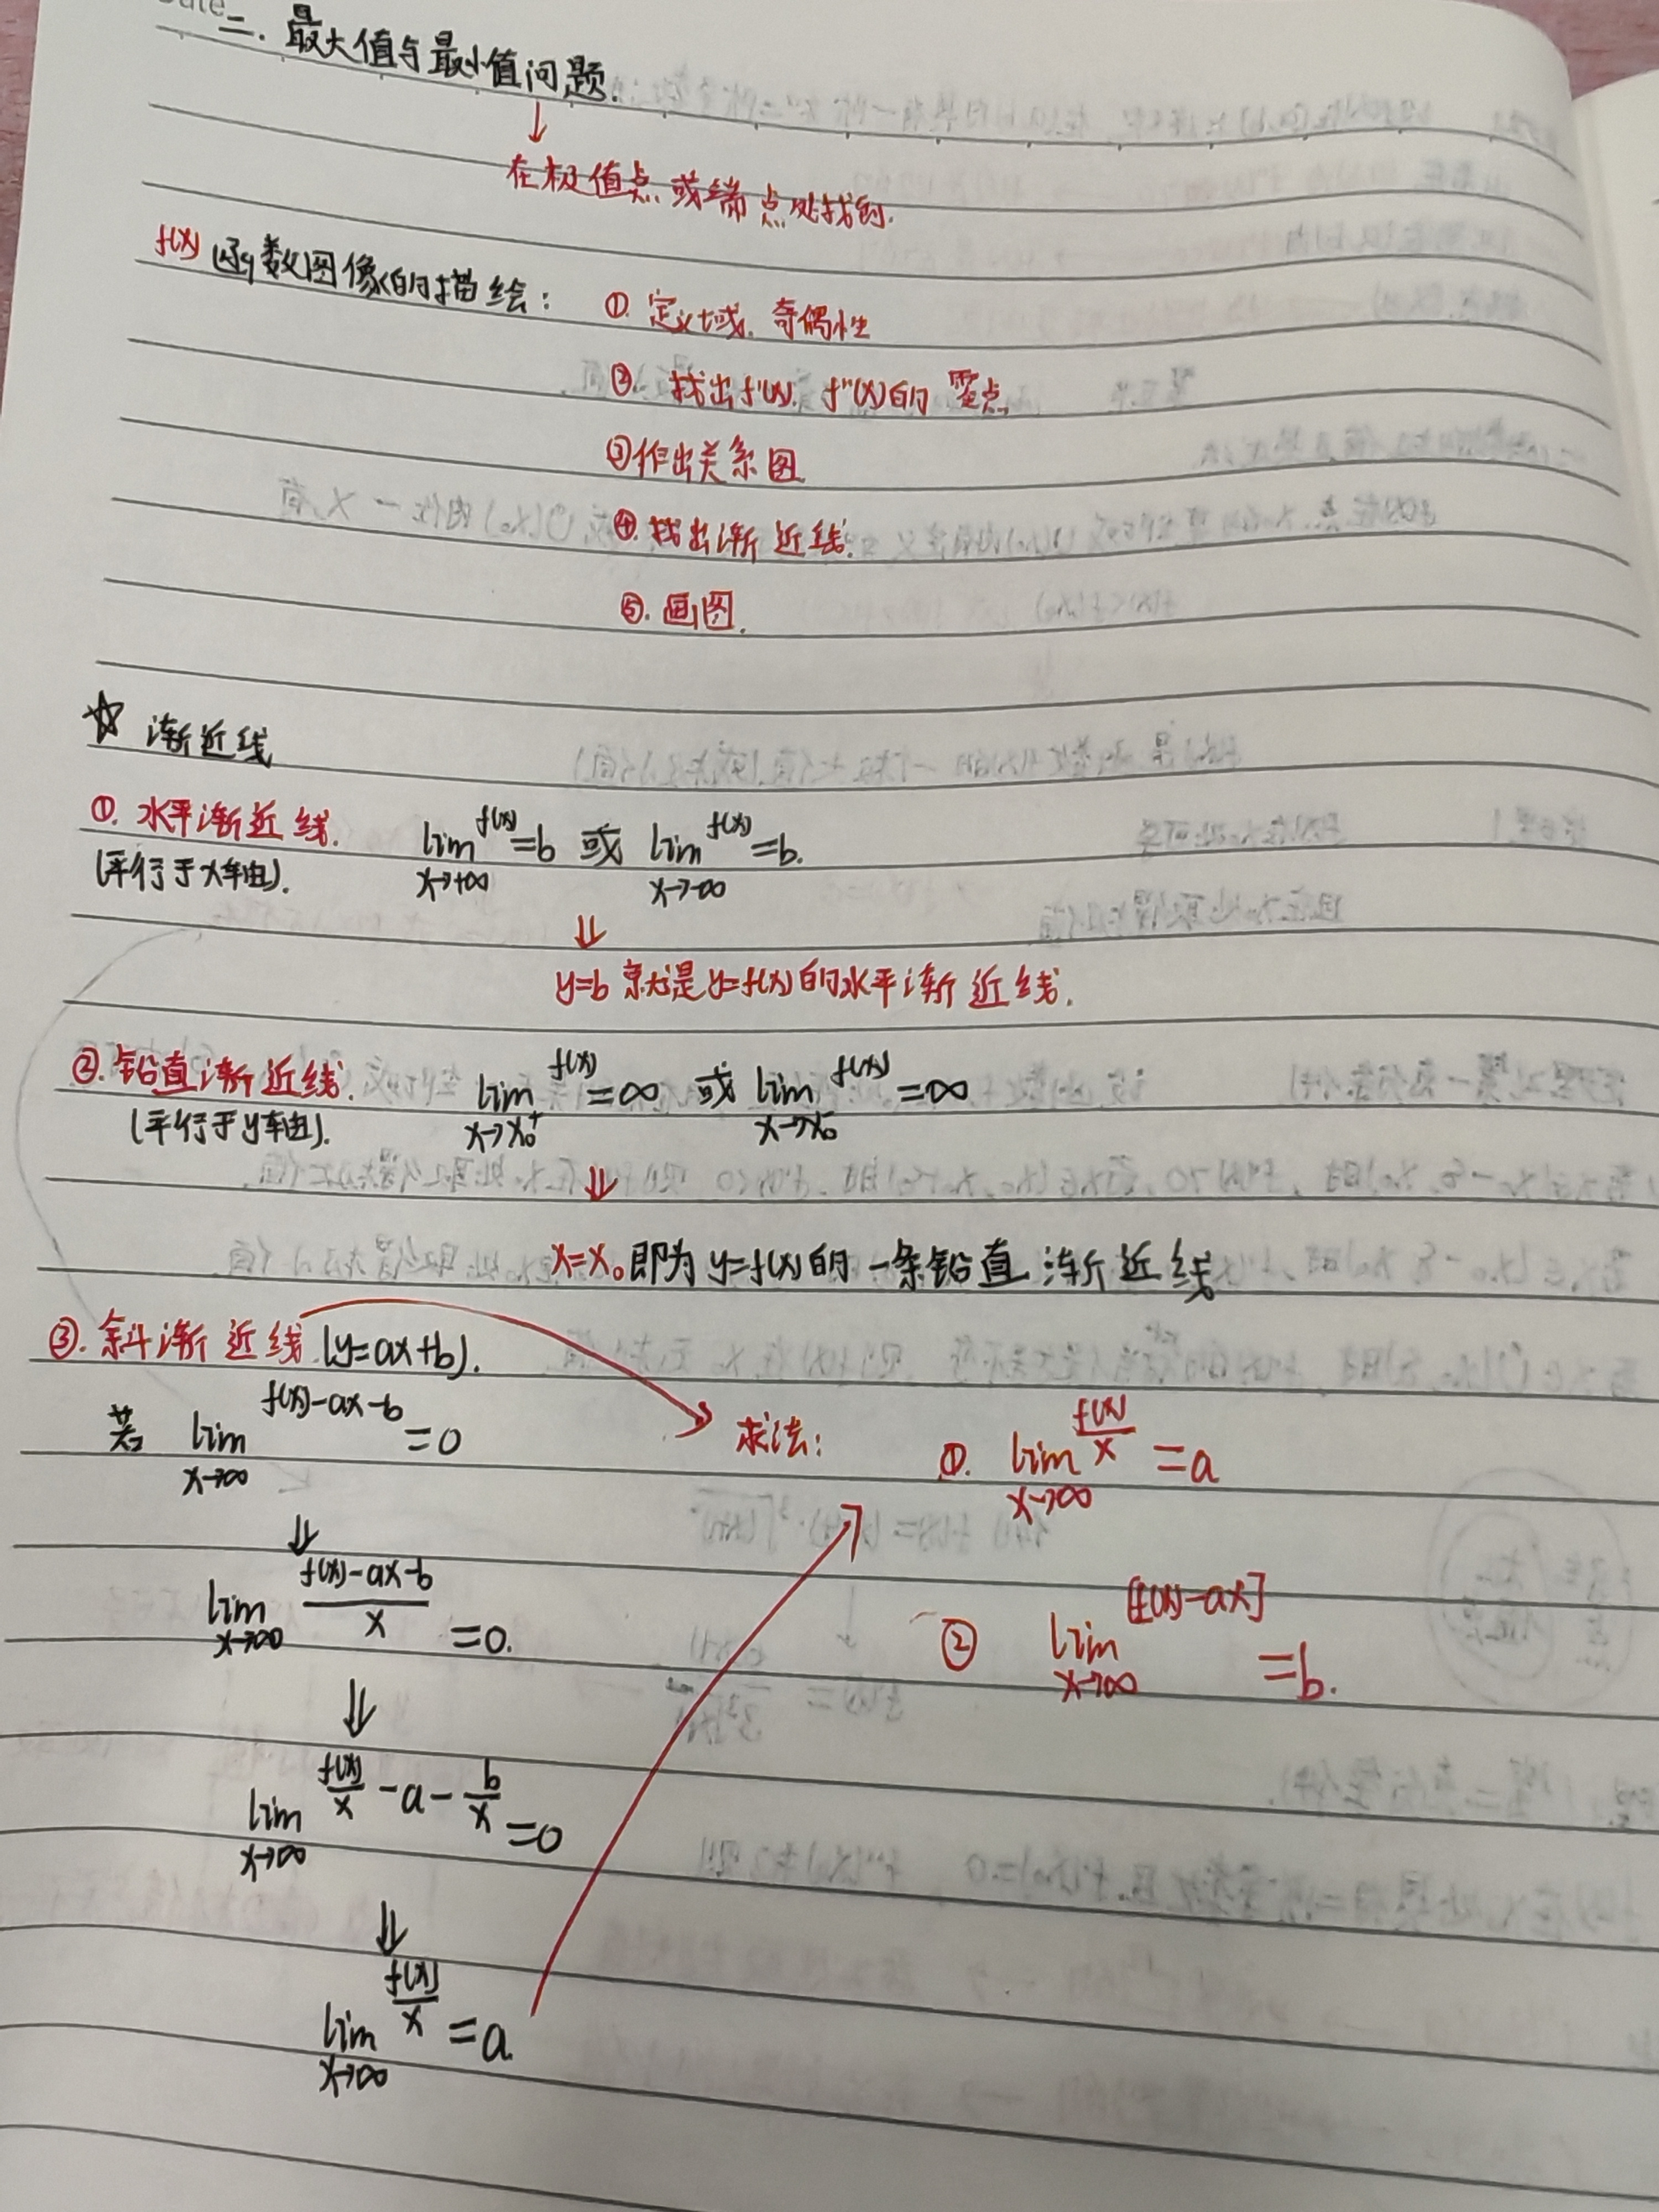 二. 最大值与最小值问题.
↓
在极值点或端点处找到.
f(x) 函数图像的描绘: ①. 定义域. 奇偶性
② 找出f'(x). f''(x)的 零点
③作出关系图
④. 找出渐近线.
⑤. 画图.
☆ 渐近线
①. 水平渐近线. lim_{x→+∞} f(x) =b 或 lim_{x→-∞} f(x) =b.
(平行于x轴).
⇓
y=b 就是y=f(x)的水平渐近线.
②. 铅直渐近线. lim_{x→x₀⁺} f(x) =∞ 或 lim_{x→x₀⁻} f(x) =∞
(平行于y轴).
⇓
x=x₀即为 y=f(x)的一条铅直渐近线
③. 斜渐近线.(y=ax+b).
若 lim_{x→∞} f(x)-ax-b =0
求法: ①. lim_{x→∞} f(x)/x =a
⇓
lim_{x→∞} (f(x)-ax-b)/x =0.
② lim_{x→∞} [f(x)-ax] =b.
⇓
lim_{x→∞} f(x)/x -a- b/x =0
⇓
lim_{x→∞} f(x)/x =a.